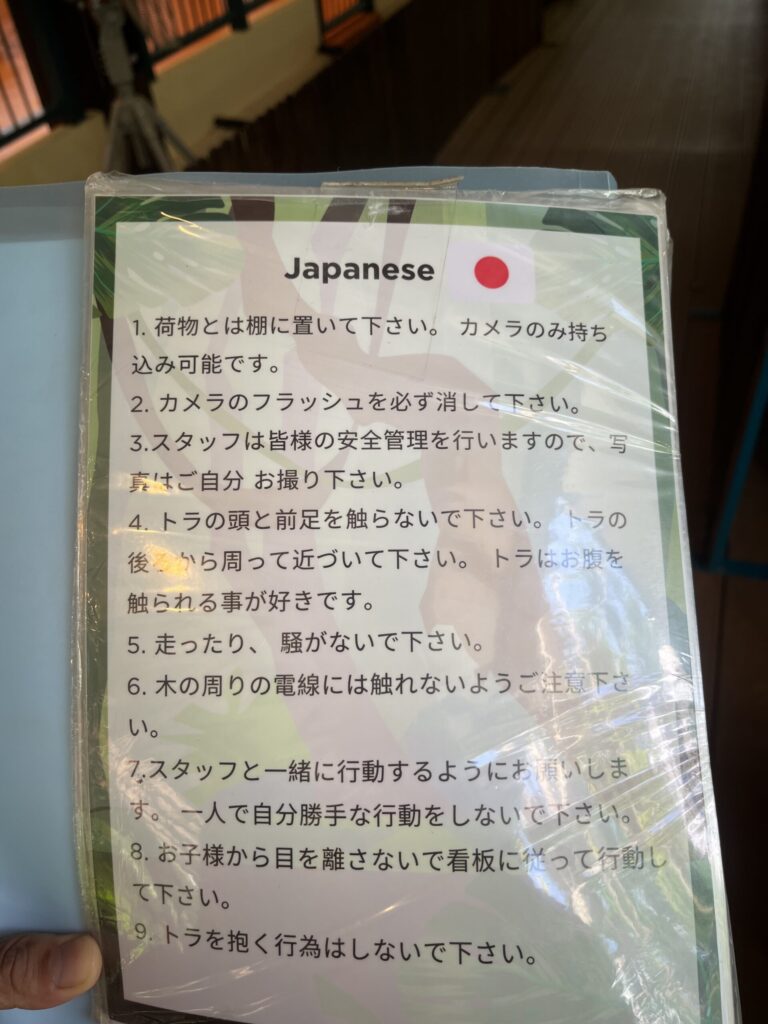 Japanese
1. 荷物とは棚に置いて下さい。 カメラのみ持ち
込み可能です。
2. カメラのフラッシュを必ず消して下さい。
3.スタッフは皆様の安全管理を行いますので、写
真はご自分 お撮り下さい。
4. トラの頭と前足を触らないで下さい。 トラの
後ろから周って近づいて下さい。 トラはお腹を
触られる事が好きです。
5. 走ったり、 騒がないで下さい。
6. 木の周りの電線には触れないようご注意下さ
い。
7.スタッフと一緒に行動するようにお願いしま
す。 一人で自分勝手な行動をしないで下さい。
8. お子様から目を離さないで看板に従って行動し
て下さい。
9. トラを抱く行為はしないで下さい。